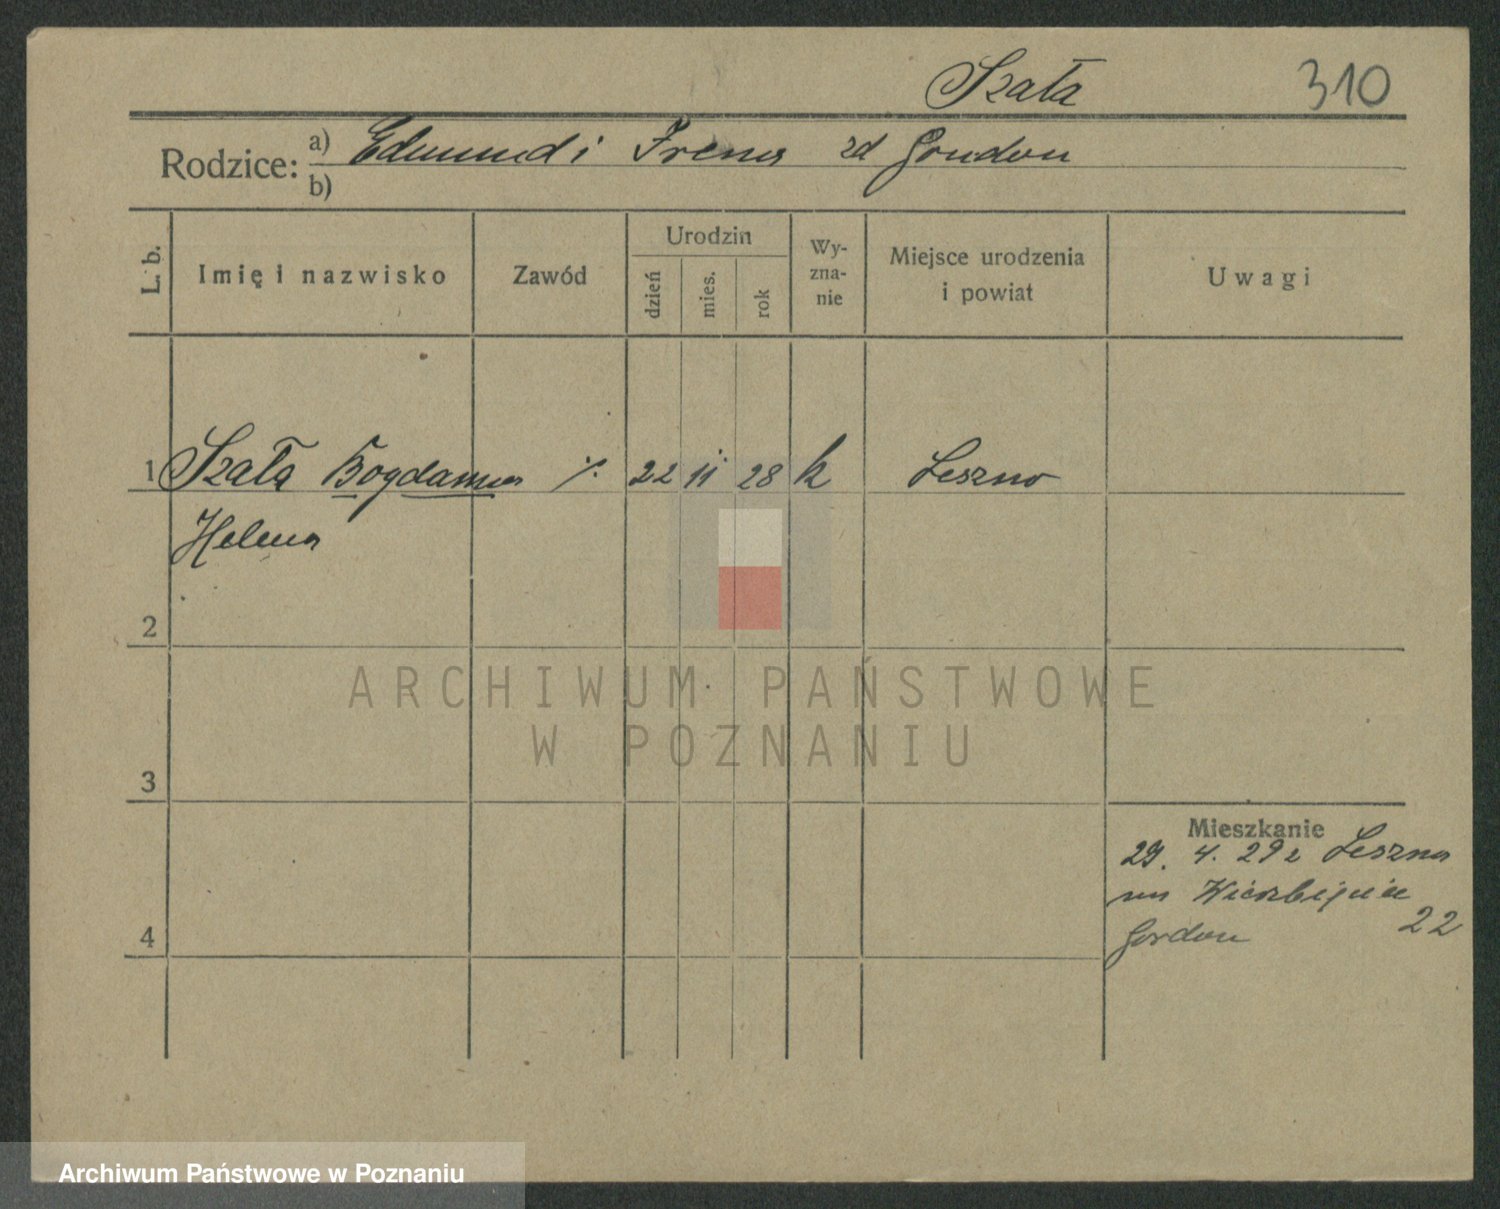 Szała 310
Rodzice: a) Edmund i Irena zd Gordon
b)
L. b. Imię i nazwisko Zawód Urodzin dzień mies. rok Wy-zna-nie Miejsce urodzenia i powiat Uwagi
1 Szała Bogdanna ./. 22 11 28 k Leszno
Helena
2
3
Mieszkanie
29. 4. 29 z Leszna
4
Gordon 22
ARCHIWUM PAŃSTWOWE
W POZNANIU
Archiwum Państwowe w Poznaniu